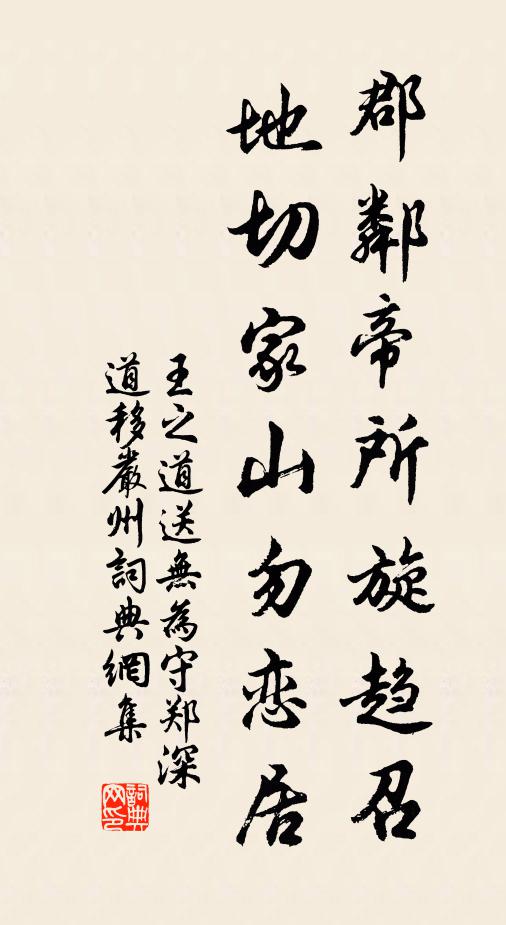 郡鄰帝所旋趋召
地切家山勿恋居
王之道送無為守郑深
道移嚴州詞典網集
詞典网印